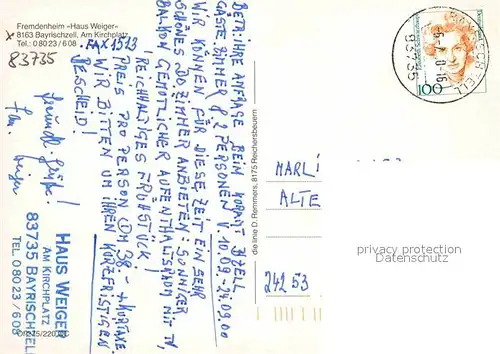 Fremdenheim »Haus Weiger«
8163 Bayrischzell, Am Kirchplatz
Tel.: 0 80 23 / 6 08
FAX 1523
83735
BETR: IHRE ANFRAGE BEIM KURAMT B'ZELL
GÄSTEZIMMER F. 2 PERSONEN V. 10.09.-24.09.00
WIR KÖNNEN FÜR DIESE ZEIT EIN SEHR
SCHÖNES DO. ZIMMER ANBIETEN: SONNIGER
BALKON GEMÜTLICHER AUFENTHALTSRAUM MIT TV,
REICHHALTIGES FRÜHSTÜCK!
PREIS PRO PERSON DM 38.- + KURTAXE.
WIR BITTEN UM IHREN KURZFRISTIGEN
BESCHEID!
Freundl. Grüße!
Fam. Weiger
HAUS WEIGER
AM KIRCHPLATZ
83735 BAYRISCHZELL
TEL. 0 80 23 / 608
die linie D. Remmers, 8175 Reichersbeuern
BAYRISCHZELL
83735
100
MARLI
ALTE
24253
privacy protection
Datenschutz